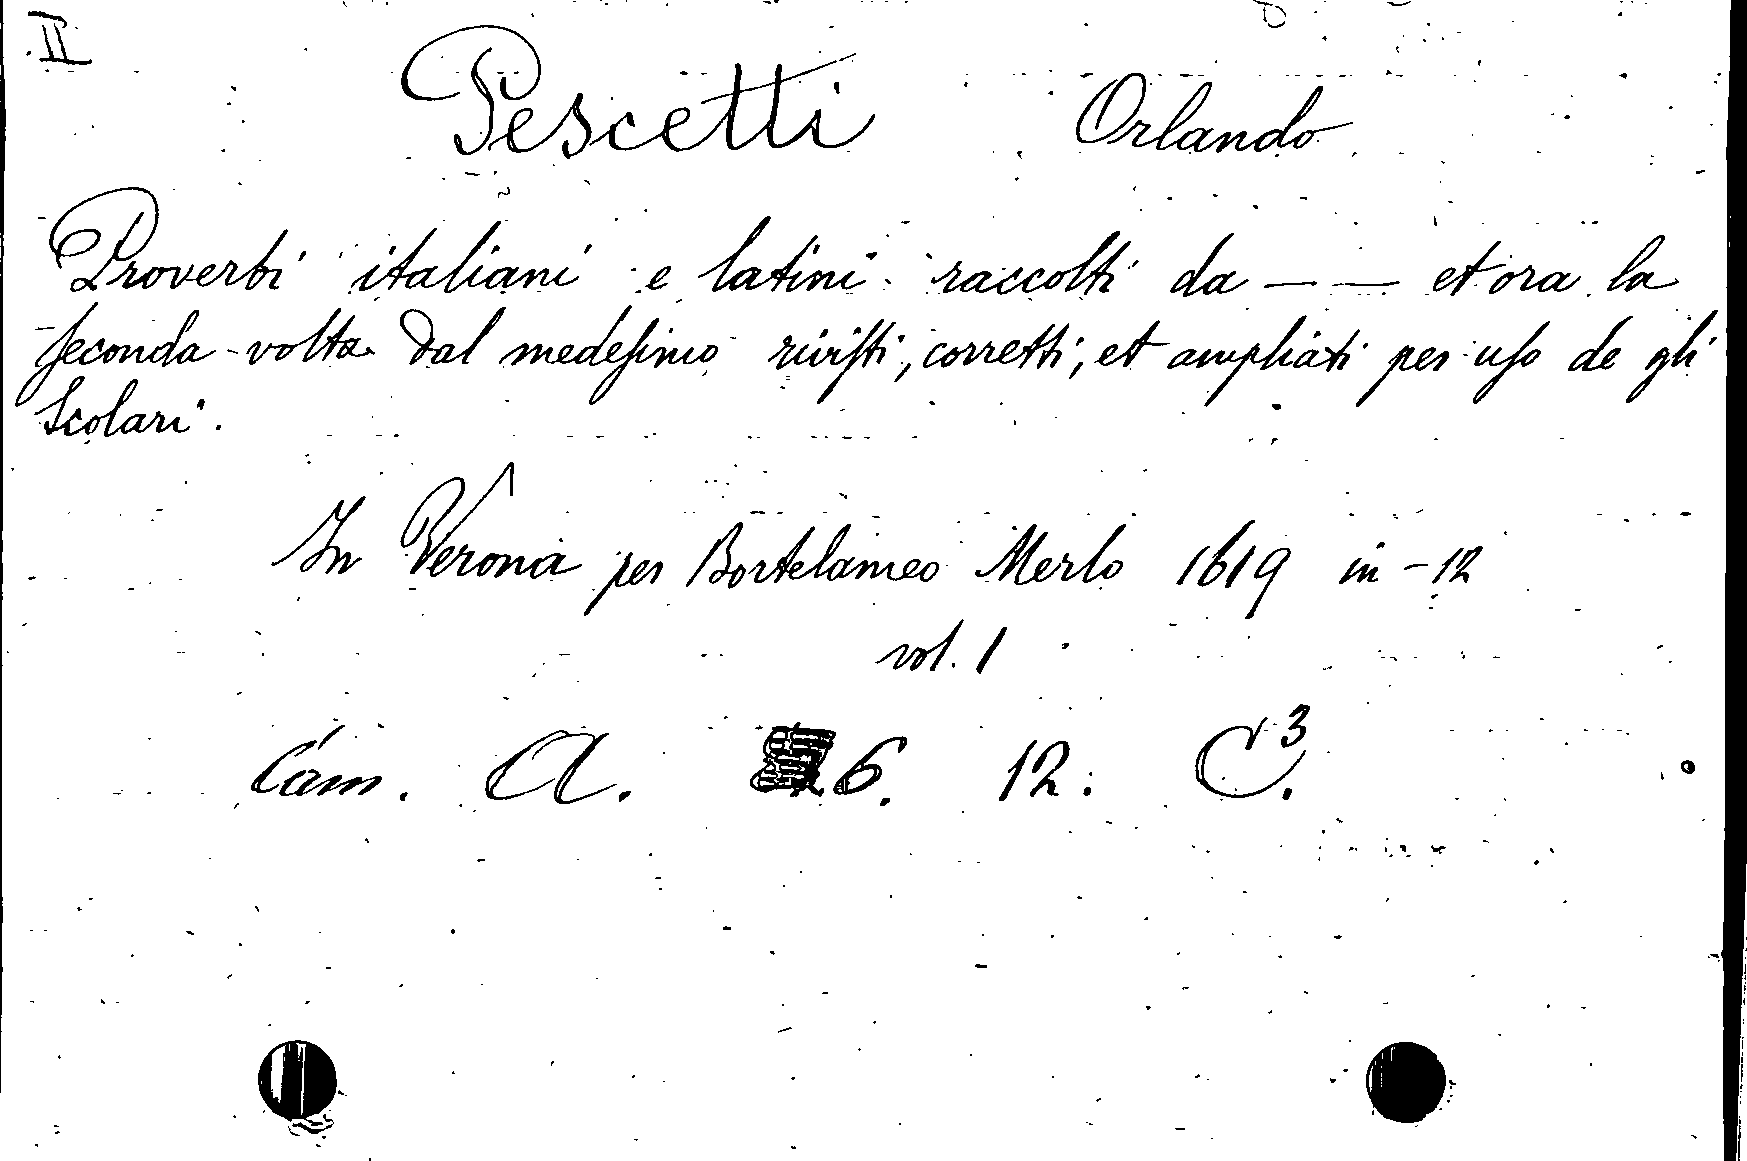 II
Pescetti Orlando
Proverbi italiani e latini raccolti da — — et ora la
ſeconda volta dal medeſimo riviſti, corretti, et ampliati per uſo de gli
Scolari.
In Verona per Bortelameo Merlo 1619 in-12
vol. 1
Cam. A. 6. 12. C³.